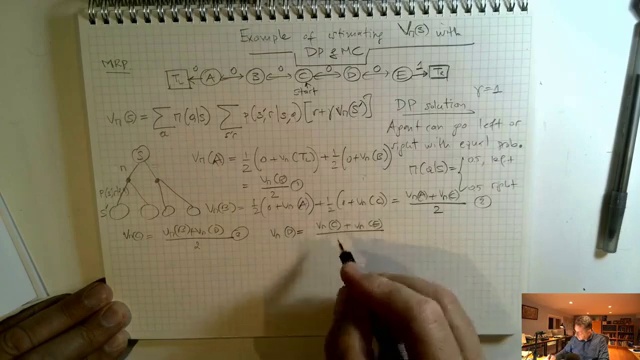 Example of estimating Vπ(s) with
DP & MC
MRP
T₁ ← 0 A 0 B 0 C 0 D 0 E 1 → T₂
start
Vπ(s) = Σa π(a|s) Σs'r p(s',r|s,a) [r+γVπ(s')]
DP solution γ=1
Agent can go left or
right with equal prob.
π(a|s) = { 0.5, left
0.5 right
Vπ(A) = 1/2 (0+Vπ(T₁)) + 1/2 (0+Vπ(B))
= Vπ(B)/2 ①
Vπ(B) = 1/2 (0+Vπ(A)) + 1/2 (0+Vπ(C)) = Vπ(A)+Vπ(C) / 2 ②
Vπ(C) = Vπ(B)+Vπ(D) / 2 ③
Vπ(D) = Vπ(C) + Vπ(E)
S
π
S'